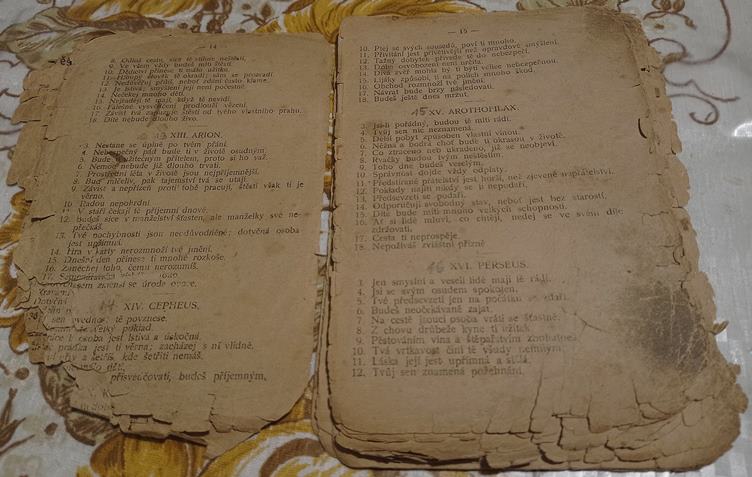 — 14 —
8. Odlož cestu, sice tě stihne neštěstí.
9. Ve všem vždy budeš míti štěstí.
10. Obdaruj přítele, máš užitku.
13. Je lstivá; smýšlení její není počestné.
14. Nečekej mnoho dětí.
15. Nejraději tě mají, když tě nevidí.
16. Falešné vysvědčení prodlouží vězení.
17. Závist tvá zapuzuje štěstí od tvého vlastního prahu.
18. Dítě nebude dlouho živo.
13 XIII. ARION.
3. Nestane se úplně po tvém přání.
4. Nebezpečný pád bude ti v životě osudným
5. Bude užitečným přítelem, proto si ho važ.
6. Nemoc nebude již dlouho trvati.
7. Prostřední léta v životě jsou nejpříjemnější.
8. Buď mlčeliv, pak tajemství tvá se utají.
9. Závist a nepřízeň proti tobě pracují, štěstí však ti je
věrno.
10. Radou nepohrdni
11. V stáří čekají tě příjemní dnové.
12. budeš sice v manželství šťasten, ale manželky své ne-
přečkáš.
13. Tvé pochybnosti jsou neodůvodněné; dotyčná osoba
jest upřímná.
14. Hra v karty nerozmnoží tvé jmění.
15. Dnešní den přinese ti mnohé rozkoše.
16. Zanechej toho, čemu nerozumíš.
17.
zamsí se úrode ovoce.
Dotyční
14 XIV. CEPHEUS.
sen tě povznese.
velký poklad.
osoba jest lstivá a úskočná.
jest ti věrna; zacházej s ní vlídně.
a letiš, kde šetřiti nemáš.
přisvědčovati, budeš příjemným,
— 15 —
10. Ptej se svých sousedů, poví ti mnoho.
11. Přivítání jest přívětivější než opravdové smýšlení.
12. Tažný dobytek přivede tě do nebezpečí.
13. Týden osvobození není určitá.
14. Dívá zvěř mohla by ti býti velice nebezpečnou.
15. Lijáky způsobí, ti na polích mnoho škod.
16. Obchod rozmnoží tvé jmění.
17. Návrat bude brzy následovati.
18. Budeš ještě dnes mrzut.
15 XV. AROTHOFILAX.
3. Jsi-li pořádný, budou tě míti rádi.
4. Tvůj sen nic neznamená.
5. Delší pobyt způsoben vlastní vinou.
6. Něžná a bodrá choť bude ti okrasou v životě.
7. Co ztraceno neb ukradeno, již se neobjeví.
8. Rvačky budou tvým neštěstím.
9. Toho dne budeš veselým.
10. Správnost dojde vždy odplaty.
11. Předstírané přátelství jest horší, než zjevné nepřátelství.
12. Poklady najíti nikdy se ti nepodaří.
13. Předsevzetí se podaří.
14. Odporučuji svobodný stav, neboť jest bez starostí.
15. Dítě bude míti mnoho velkých schopností.
16. Ať si lidé mluví, co chtějí, nedej se ve svém díle
zdržovati.
17. Cesta ti neprospěje.
18. Nepožíváš zvláštní přízně
16 XVI. PERSEUS.
3. Jen smyslní a veselí lidé mají tě rádi.
4. Jsi se svým osudem spokojen.
5. Tvé předsevzetí jen na počátku se zdaří.
6. Budeš neočekávaně zajat.
7. Na cestě jsoucí osoba vrátí se šťastně.
8. Z chovu drůbeže kyne ti užitek
9. Pěstováním vína a štěpařstvím zbohatneš.
10. Tvá vrtkavost činí tě všudy nemilým.
11. Láska její jest upřímná a stálá.
12. Tvůj sen znamená požehnání.